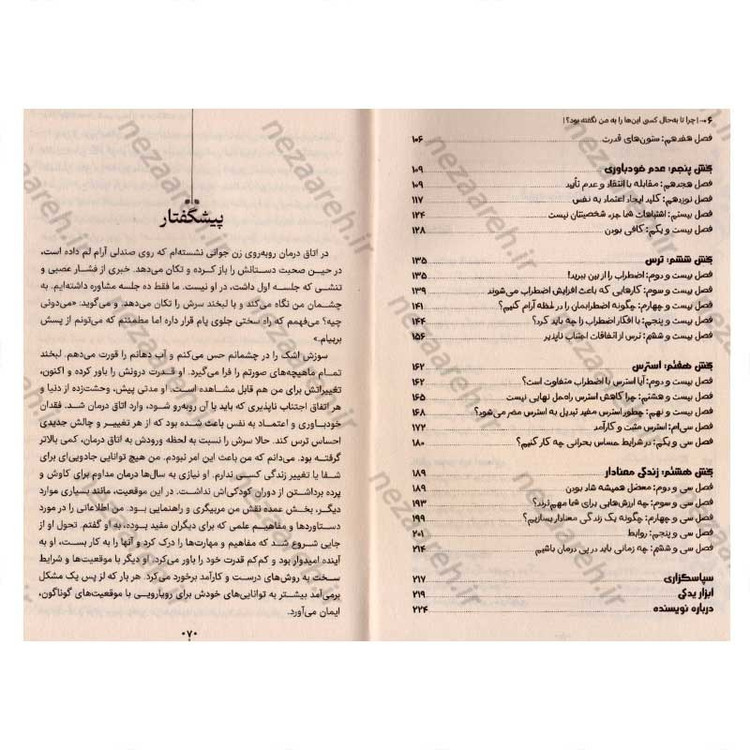 ۶ • | چرا تا به‌حال کسی این‌ها را به من نگفته بود؟ |
فصل هفدهم: ستون‌های قدرت ۱۰۶
بخش پنجم: عدم خودباوری ۱۰۹
فصل هجدهم: مقابله با انتقاد و عدم تأیید ۱۰۹
فصل نوزدهم: کلید ایجاد اعتماد به نفس ۱۱۷
فصل بیستم: اشتباهات شما جزء شخصیتتان نیست ۱۲۴
فصل بیست و یکم: کافی بودن ۱۲۸
بخش ششم: ترس ۱۳۵
فصل بیست و دوم: اضطراب را از بین ببرید! ۱۳۵
فصل بیست و سوم: کارهایی که باعث افزایش اضطراب می‌شوند ۱۳۹
فصل بیست و چهارم: چگونه اضطرابمان را در لحظه آرام کنیم؟ ۱۴۱
فصل بیست و پنجم: با افکار اضطراب زا چه باید کرد؟ ۱۴۴
فصل بیست و ششم: ترس از اتفاقات اجتناب ناپذیر ۱۵۶
بخش هفتم: استرس ۱۶۲
فصل بیست و هفتم: آیا استرس با اضطراب متفاوت است؟ ۱۶۲
فصل بیست و هشتم: چرا کاهش استرس راه‌حل نهایی نیست؟ ۱۶۵
فصل بیست و نهم: چطور استرس مفید تبدیل به استرس مضر می‌شود؟ ۱۶۸
فصل سی‌ام: استرس مثبت و کارآمد ۱۷۲
فصل سی و یکم: در شرایط حساس بحرانی چه کار کنیم؟ ۱۸۰
بخش هشتم: زندگی معنادار ۱۸۹
فصل سی و دوم: معضل همیشه شاد بودن ۱۸۹
فصل سی و سوم: چه ارزش‌هایی برای شما مهم‌ترند؟ ۱۹۳
فصل سی و چهارم: چگونه یک زندگی معنادار بسازیم؟ ۱۹۹
فصل سی و پنجم: روابط ۲۰۱
فصل سی و ششم: چه زمانی باید در پی درمان باشیم ۲۱۴
سپاسگزاری ۲۱۷
ابزار یدکی ۲۱۹
درباره نویسنده ۲۲۴
پیشگفتار
در اتاق درمان روبه‌روی زن جوانی نشسته‌ام که روی صندلی آرام لم داده است،
در حین صحبت دستانش را باز کرده و تکان می‌دهد. خبری از فشار عصبی و
تنشی که جلسه اول داشت، در او نیست. ما فقط ده جلسه مشاوره داشته‌ایم. به
چشمان من نگاه می‌کند و با لبخند سرش را تکان می‌دهد، و می‌گوید: «می‌دونی
چیه؟ می‌فهمم که راه سختی جلوی پام قرار داره اما مطمئنم که می‌تونم از پسش
بربیام.»
سوزش اشک را در چشمانم حس می‌کنم و آب دهانم را قورت می‌دهم. لبخند
تمام ماهیچه‌های صورتم را فرا می‌گیرد. او قدرت درونش را باور کرده و اکنون،
تغییراتش برای من هم قابل مشاهده است. او مدتی پیش، وحشت‌زده از دنیا و
هر اتفاق اجتناب ناپذیری که باید با آن روبه‌رو شود، وارد اتاق درمان شد. فقدان
خودباوری و اعتماد به نفس باعث شده بود که از هر تغییر و چالش جدیدی
احساس ترس کند. حالا سرش را نسبت به لحظه ورودش به اتاق درمان، کمی بالاتر
گرفته بود. می‌دانم که من باعث این امر نبودم. من هیچ توانایی جادویی‌ای برای
شفا یا تغییر زندگی کسی ندارم. او نیازی به سال‌ها درمان مداوم برای کاوش و
پرده برداشتن از دوران کودکی‌اش نداشت. در این موقعیت، مانند بسیاری موارد
دیگر، بخش عمده نقش من مربیگری و راهنمایی بود. من اطلاعاتی را در مورد
دستاوردها و مفاهیم علمی که برای دیگران مفید بوده، به او گفتم. تحول او از
جایی شروع شد که مفاهیم و مهارت‌ها را درک کرد و آنها را به کار بست، او به
آینده امیدوار بود و کم‌کم قدرت خود را باور می‌کرد. او دیگر با موقعیت‌ها و شرایط
سخت به روش‌های درست و کارآمد برخورد می‌کرد. هر بار که از پس یک مشکل
برمی‌آمد بیشتر به توانایی‌های خودش برای رویارویی با موقعیت‌های گوناگون،
ایمان می‌آورد.
۰۷۰
nezaareh.ir